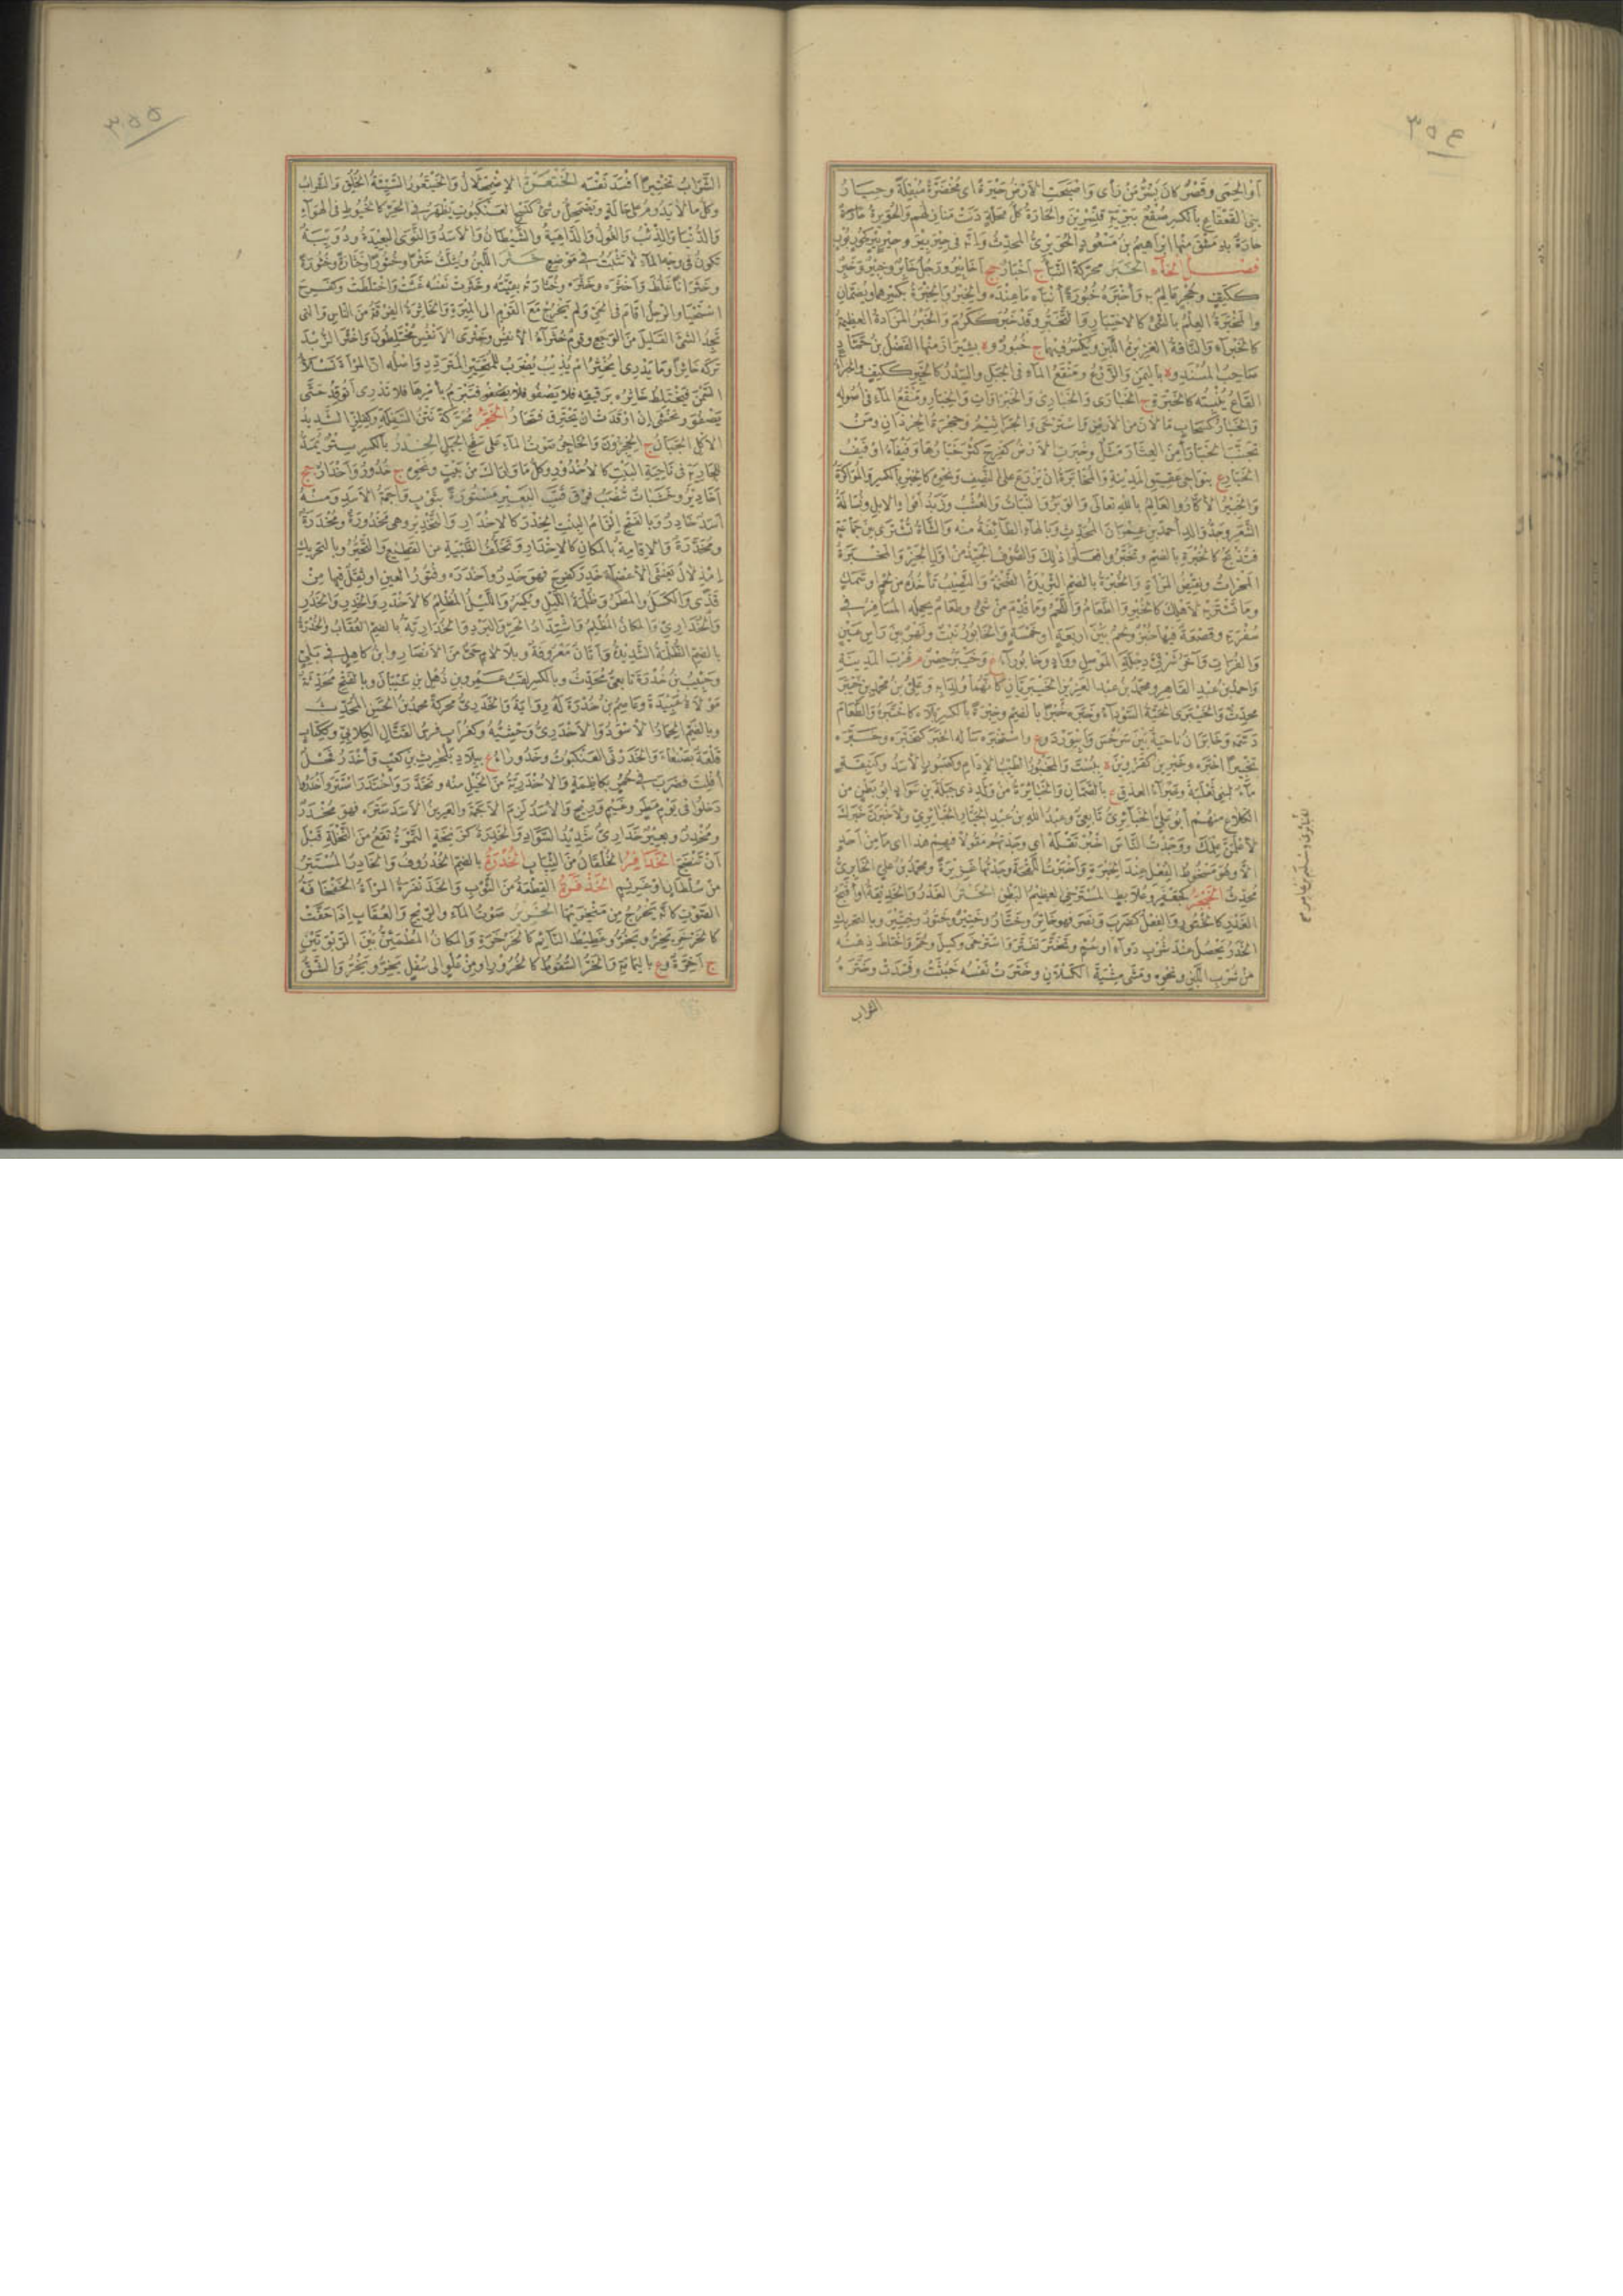 ٣٥٤
او الحِمَى وقَصْرٌ كان بِسُرَّ مَنْ رَأى وَاصْبَحَتِ الأرْضُ حَيْرَةً اى مُخْضَرَّةً مُبْقِلَةً وحِيَارُ
بنى القَعْقَاعِ بالكسر صُقْعٌ بِبَرِّيَّةِ قِنَّسْرِينَ والحَارَةُ كلُّ مَحَلَّةٍ دَنَتْ مَنازِلُهم والحُوَيْرَةُ حَارَةٌ
بدِمَشْقَ منها ابراهيمُ بنُ مَسْعُودٍ الحُوَيْرِىُّ المحدِّثُ وَانَّه فى حِيْرَ بِيْرَ وحِيْرٍ بِيْرٍ كَحُورٍ بُورٍ
فصل الخاء الخَبَرُ محرّكةً النَّبَأُ ج اَخْبَارٌ جج اَخَابِيْرُ ورَجُلٌ خَابِرٌ وخَبِيْرٌ وخَبِرٌ
ككَتِفٍ وحُجْرٍ عَالِمٌ به وَأخْبَرَهُ خُبُورَهُ أنْبَأَه مَا عِنْدَه والخِبْرُ والخِبْرَةُ بكسرهما ويُضَمّان
والمَخْبَرَةُ العِلْمُ بالشَّىْءِ كالاخْتِبَارِ والتَّخَبُّرِ وقد خَبُرَ كَكَرُمَ والخَبْرُ المَزَادَةُ العظيمةُ
كالخَبْرَاءِ والنَّاقَةُ الغَزِيرَةُ اللَّبَنِ ويُكْسَرُ فيهما ج خُبُورٌ وة بشِيْرَازَ منها الفَضْلُ بنُ حَمَّادٍ
صَاحِبُ المُسْنَدِ وة باليمنِ والزَّرْعُ ومَنْقَعُ الماءِ فى الجَبَلِ والسِّدْرُ كالخَبِرِ ككَتِفٍ والخَبْرَاءُ
القَاعُ يُنْبِتُه كالخَبِرَةِ ج الخَبَارَى وَالخَبَارِى وَالخَبْرَاوَاتُ وَالخَبَارُ ومَنْقَعُ الماءِ فى اُصُولِه
وَالخَبَارُ كسَحَابٍ مَا لاَنَ من الأرضِ وَاسْتَرْخَى وَالجَرَاثِيْمُ وَجِحَرَةُ الجُرْذَانِ ومَنْ
تَجَنَّبَ الخَبَارَ اَمِنَ العِثَارَ مَثَلٌ وخَبِرَتِ الأرْضُ كفَرِحَ كَثُرَ خَبَارُهَا وَفَيْفَاءُ اوْ فَيْفُ
الخَبَارِ ع بنَوَاحِى عَقِيْقِ المَدِيْنَةِ والمُخَابَرَةُ ان يَزْرَعَ على النِّصْفِ ونَحْوِه كالخِبْرِ بالكسر وَالمُؤَاكَرَةُ
وَالخَبِيْرُ الأَكَّارُ والعَالِمُ باللهِ تعالى وَالوَبَرُ وَالنَّبَاتُ والعُشْبُ وَزَبَدُ اَفْوَاهِ الإبِلِ ونُسَالَةُ
الشَّعَرِ وجَدُّ وَالِدِ أحمدَ بنِ عِمْرَانَ المحدِّثِ وَبالهاءِ الطَّائِفَةُ منه وَالشَّاةُ تُشْتَرَى بين جَمَاعَةٍ
فتُذْبَحُ كالخُبْرَةِ بالضم وتَخَبَّرُوا فَعَلُوا ذلِكَ وَالصُّوفُ الجَيِّدُ من اَوَّلِ الجَزِّ وَالمَخْبَرَةُ
المَخْرَأَةُ ونَقِيْضُ المَرْآةِ وَالخُبْرَةُ بالضم الثَّرِيْدَةُ الضَّخْمَةُ وَالنَّصِيْبُ تَأخُذُه من لَحْمٍ او سَمَكٍ
وما تَشْتَرِيهِ لأهْلِكَ كالخُبْرِ وَالطَّعَامُ وَاللَّحْمُ وَمَا قُدِّمَ من شَىْءٍ وطَعَامٌ يحمِلُه المُسَافِرُ فى
سُفْرَتِه وقَصْعَةٌ فيها خُبْزٌ ولَحْمٌ بَيْنَ اَرْبَعَةٍ او خَمْسَةٍ وَالخَابُورُ نَبْتٌ وَنَهْرٌ بينَ رَأسِ عَيْنٍ
وَالفُرَاتِ وَآخَرُ شَرْقِىَّ دِجْلَةِ المَوْصِلِ ووَادٍ وخَابُورَاءُ ع وَخَيْبَرُ حِصْنٌ م قُرْبَ المَدِيْنَةِ
وَاحمدُ بنُ عبدِ القَاهِرِ ومحمدُ بنُ عبدِ العَزِيْزِ الخَيْبَرِيَّانِ كَأنَّهُمَا وُلِدَا بِه وَعلىُّ بنُ محمدِ بنِ خَيْبَرَ
محدِّثٌ وَالخَيْبَرَى الحَيَّةُ السَّوْدَاءُ وَخَبَرَه خُبْرًا بالضم وخِبْرَةً بالكسر بَلاَه كاخْتَبَرَهُ وَالطَّعَامَ
دَسَّمَه وَخَابَرَانُ نَاحِيةٌ بَيْنَ سَرَخْسَ وَابِيْوَرْدَ وع وَاسْتَخْبَرَه سَأله الخَبَرَ كتَخَبَّرَه وَخَبَّرَه
تَخْبِيرًا اخْبَرَه وَخَبْرِيْنُ كقَزْوِيْنَ ة ببُسْتَ وَالمَخْبُورُ الطَّيِّبُ الإدَامِ وكصَبُورٍ الأسَدُ وكنَبِقَةٍ
مَاءٌ لبنى ثَعْلَبَةَ وخَبْرَاءُ العِذْقِ ع بالصَّمَّانِ وَالخَبَائِرَةُ من وَلَدِ ذى جَبَلَةَ بنِ سَوَادٍ ابو بَطْنٍ من
الكَلاَعِ منهم أبُو عَلِىٍّ الخَبَائِرِىُّ تَابِعِىٌّ وعَبْدُ اللهِ بنُ عَبْدِ الجَبَّارِ الخَبَائِرِىُّ ولَأخْبُرَنَّ خَبَرَكَ
لأعْلَمَنَّ عِلْمَكَ ووَجَدْتُ النَّاسَ اخْبُرْ تَقْلَهْ اى وَجَدْتُهم مَقُولاً فيهم هذا اى مَا مِنْ اَحَدٍ
الاَّ وهُوَ مَسْخُوطُ الفِعْلِ عِنْدَ الخِبْرَةِ وَاخْبَرْتُ اللِّقْحَةَ وَجَدْتُهَا غَزِيْرَةً ومحمدُ بنُ علىٍّ الخَابُورِىُّ
مُحدِّثٌ الخَبْجَرُ كجَعْفَرٍ وعُلاَبِطٍ المُسْتَرْخِى العظيمُ البَطْنِ الخَتْرُ الغَدْرُ وَالخَدِيْعَةُ او اَقْبَحُ
الغَدْرِ كالخُتُورِ وَالفِعْلُ كضَرَبَ وَنَصَرَ فهو خَاتِرٌ وخَتَّارٌ وخَتِيْرٌ وخَتُورٌ وخِتِّيْرٌ وبالتحريك
الخَدَرُ يَحْصُلُ عِنْدَ شُرْبِ دَوَاءٍ او سُمٍّ وتَخَتَّرَ تَفَتَّرَ وَاسْتَرْخَى وكَسِلَ وحُمَّ وَاخْتَلَطَ ذِهْنُه
مِنْ شُرْبِ اللَّبَنِ ونَحْوِه ومَشَى مِشْيَةَ الكَسْلاَنِ وخَتَرَتْ نَفْسُه خَبُثَتْ وفَسَدَتْ وخَتَّرَهُ
الشراب
٣٥٥
الشَّرَابُ تَخْتِيرًا اَفْسَدَ نَفْسَه الخَتْعَرَةُ الإضْمِحْلاَلُ وَالخَيْتَعُورُ السَّيِّئَةُ الخُلُقِ وَالسَّرَابُ
وكلُّ ما لا يَدُومُ على حَالَةٍ ويَضْمَحِلُّ وشَىْءٌ كنَسْجِ العَنْكَبُوتِ يَظْهَرُ فى الحَرِّ كالخُيُوطِ فى الهَوَاءِ
وَالدُّنْيَا وَالذِّئْبُ وَالغُولُ وَالدَّاهِيَةُ والشَّيْطَانُ وَالأسَدُ وَالنَّوَى البَعِيْدَةُ ودُوَيْبَةٌ
تكونُ فى وجْهِ الماءِ لا تَثْبُتُ فى مَوْضِعٍ خَثَرَ اللَّبَنُ ويُثَلَّثُ خَثْرًا وخُثُورًا وخَثَارَةً وخُثُورَةً
وخَثَرَانًا غَلُظَ وَاَخْثَرَه وخَثَّرَه وخُثَارَتُه بقِيَّتُه وخَثَرَتْ نَفْسُه غَثَتْ وَاخْتَلَطَتْ وكفَرِحَ
اسْتَحْيَا والرَّجُلُ اَقَامَ فى الحَىِّ وَلم يَخْرُجْ مَعَ القَوْمِ الى المِيْرَةِ وَالخَاثِرَةُ الفِرْقَةُ منَ النَّاسِ وَالتى
تَجِدُ الشَّىْءَ القَلِيْلَ مِنَ الوَجَعِ وقَوْمٌ خُثَرَاءُ الأنْفُسِ وخَثْرَى الأنْفُسِ مُخْتَلِطُونَ وَاخْثَرَ الزُّبْدَ
تَرَكَه خَاثِرًا وَمَا يَدْرِى اَ يُخْثِرُ امْ يُذِيْبُ يُضْرَبُ للمُتَحَيِّرِ المُتَرَدِّدِ وَاصْلُه انّ المَرْأةَ تَسْلَأُ
السَّمْنَ فيَخْتَلِطُ خَاثِرُه برَقِيقِه فلا يَصْفُو فتَبْرَمُ بأمْرِهَا فلا تَدْرِى اَ تُوقِدُ حَتَّى
يَصْفُوَ وتَخْشَى إنْ اوْقَدَتْ ان يَحْتَرِقَ فتَحَارُ الخَجَرُ مُحَرَّكةً نَتْنُ السَّفِلَةِ وكفِلِزٍّ الشَّدِيدُ
الأكْلِ الجَبَانُ ج الخِجِرُّونَ وَالخَاجِرُ صَوْتُ الماءِ على سَفْحِ الجَبَلِ الخِدْرُ بالكسر سِتْرٌ يُمَدُّ
للجَارِيَةِ فى نَاحِيَةِ البَيْتِ كالأُخْدُورِ وكلُّ مَا وَارَاكَ مِنْ بَيْتٍ ونَحْوِه ج خُدُورٌ وَاَخْدَارٌ جج
اَخَادِيْرُ وخَشَبَاتٌ تُنْصَبُ فَوْقَ قَتَبِ البَعِيْرِ مَسْتُورَةً بثَوْبٍ واَجَمَةُ الأسَدِ ومِنْهُ
اَسَدٌ خَادِرٌ وبالفَتْحِ اِلْزَامُ البِنْتِ الخِدْرَ كالإخْدَارِ وَالتَّخْدِيْرِ وهى مَخْدُورَةٌ ومُخْدَرَةٌ
ومُخَدَّرَةٌ وَالإقَامَةُ بالمَكَانِ كالإخْدَارِ وتَخَلُّفُ الظَّبْيَةِ عنِ القَطِيْعِ وَالتَّحَيُّرُ وبالتحريك
اِمْذِلاَلٌ يَغْشَى الأعْضَاءَ خَدِرَ كفَرِحَ فهُوَ خَدِرٌ وَاَخْدَرَه وفُتُورُ العَيْنِ او ثِقَلٌ فيها مِنْ
قَذًى وَالكَسَلُ والمَطَرُ وظُلْمَةُ اللَّيْلِ ويُكْسَرُ وَاللَّيْلُ المُظْلِمُ كالأَخْدَرِ وَالخَدِرِ وَالخَدُرِ
وَالخُدَارِىِّ وَالمَكَانُ المُظْلِمُ وَاشْتِدَادُ الحَرِّ وَالبَرْدِ وَالخُدَارِيَّةُ بالضم العُقَابُ وَالخُدْرَةُ
بالضم الظُّلْمَةُ الشَّدِيْدَةُ وَاَتَانٌ مَعْرُوفَةٌ وبلاَ لامٍ حَىٌّ منَ الأنْصَارِ وابنُ كَاهِلٍ فى بَلِىٍّ
وحَبِيْبُ بنُ خُدْرَةَ تَابِعِىٌّ مُحَدِّثٌ وبالكسر لَقَبُ عَمْرِو بنِ ذُهْلِ بنِ شَيْبَانَ وبالفتح مُحَدِّثَةٌ
مَوْلاَةُ عُبَيْدَةَ وعَامِرُ بنُ خُدْرَةَ لَهُ رِوَايَةٌ وَالخَدَرِىُّ محرّكةً محمدُ بنُ الحسَنِ المُحَدِّثُ
وبالضم الحِمَارُ الأسْوَدُ وَالأَخْدَرِىُّ وَحْشِيُّهُ وكغُرَابٍ فرسُ القَتَّالِ الكِلاَبِىِّ وككِتَابٍ
قَلْعَةٌ بصَنْعَاءَ وَالخَدَرْنَقُ العَنْكَبُوتُ وخَدُورَاءُ ع ببِلاَدِ بَلْحَرِثِ بنِ كَعْبٍ وَاَخْدَرُ فَحْلٌ
اُفْلِتَ فضَرَبَ فى حُمُرٍ بكَاظِمَةَ وَالأَخْدَرِيَّةُ منَ الخَيْلِ منه وتَخَدَّرَ وَاخْتَدَرَ اسْتَتَرَ وَاَخْدَرُوا
دَخَلُوا فى يَوْمِ مَطَرٍ وغَيْمٍ وَرِيْحٍ وَالأسَدُ لَزِمَ الأجَمَةَ والعَرِيْنُ الأسَدَ سَتَرَه فهو مُخْدَرٌ
ومُخْدِرٌ وبعِيْرٌ خُدَارِىٌّ شَدِيْدُ السَّوَادِ وَالخَدِرَةُ كزَنِخَةٍ التَّمْرَةُ تَقَعُ منَ النَّخْلَةِ قَبْلَ
اَنْ تَنْضَجَ الخَدَافِرُ الخُلْقَانُ منَ الثِّيَابِ الخُذْرَةُ بالضم الخُذْرُوفُ وَالخَاذِرُ المُسْتَتِرُ
مِنْ سُلْطَانٍ او غَرِيْمٍ الخَذْفَرَةُ القِطْعَةُ منَ الثَّوْبِ وَالخَذَنْفَرَةُ المَرْأَةُ الخَفْخَافَةُ
الصَّوْتِ كَانّه يَخْرُجُ مِنْ مَنْخِرَيْهَا الخَرِيْرُ صَوْتُ المَاءِ والرِّيْحِ وَالعُقَابِ إذَا حَفَّتْ
كالخَرْخَرِ يَخِرُّ ويَخُرُّ وغَطِيْطُ النَّائِمِ كالخَرْخَرَةِ وَالمَكَانُ المُطْمَئِنُّ بَيْنَ الرَّبْوَتَيْنِ
ج اَخِرَّةٌ وع باليَمَامَةِ وَالخَرُّ السُّقُوطُ كالخُرُورِ او مِنْ عُلْوٍ الى سُفْلٍ يَخِرُّ ويَخُرُّ وَالشَّقُّ